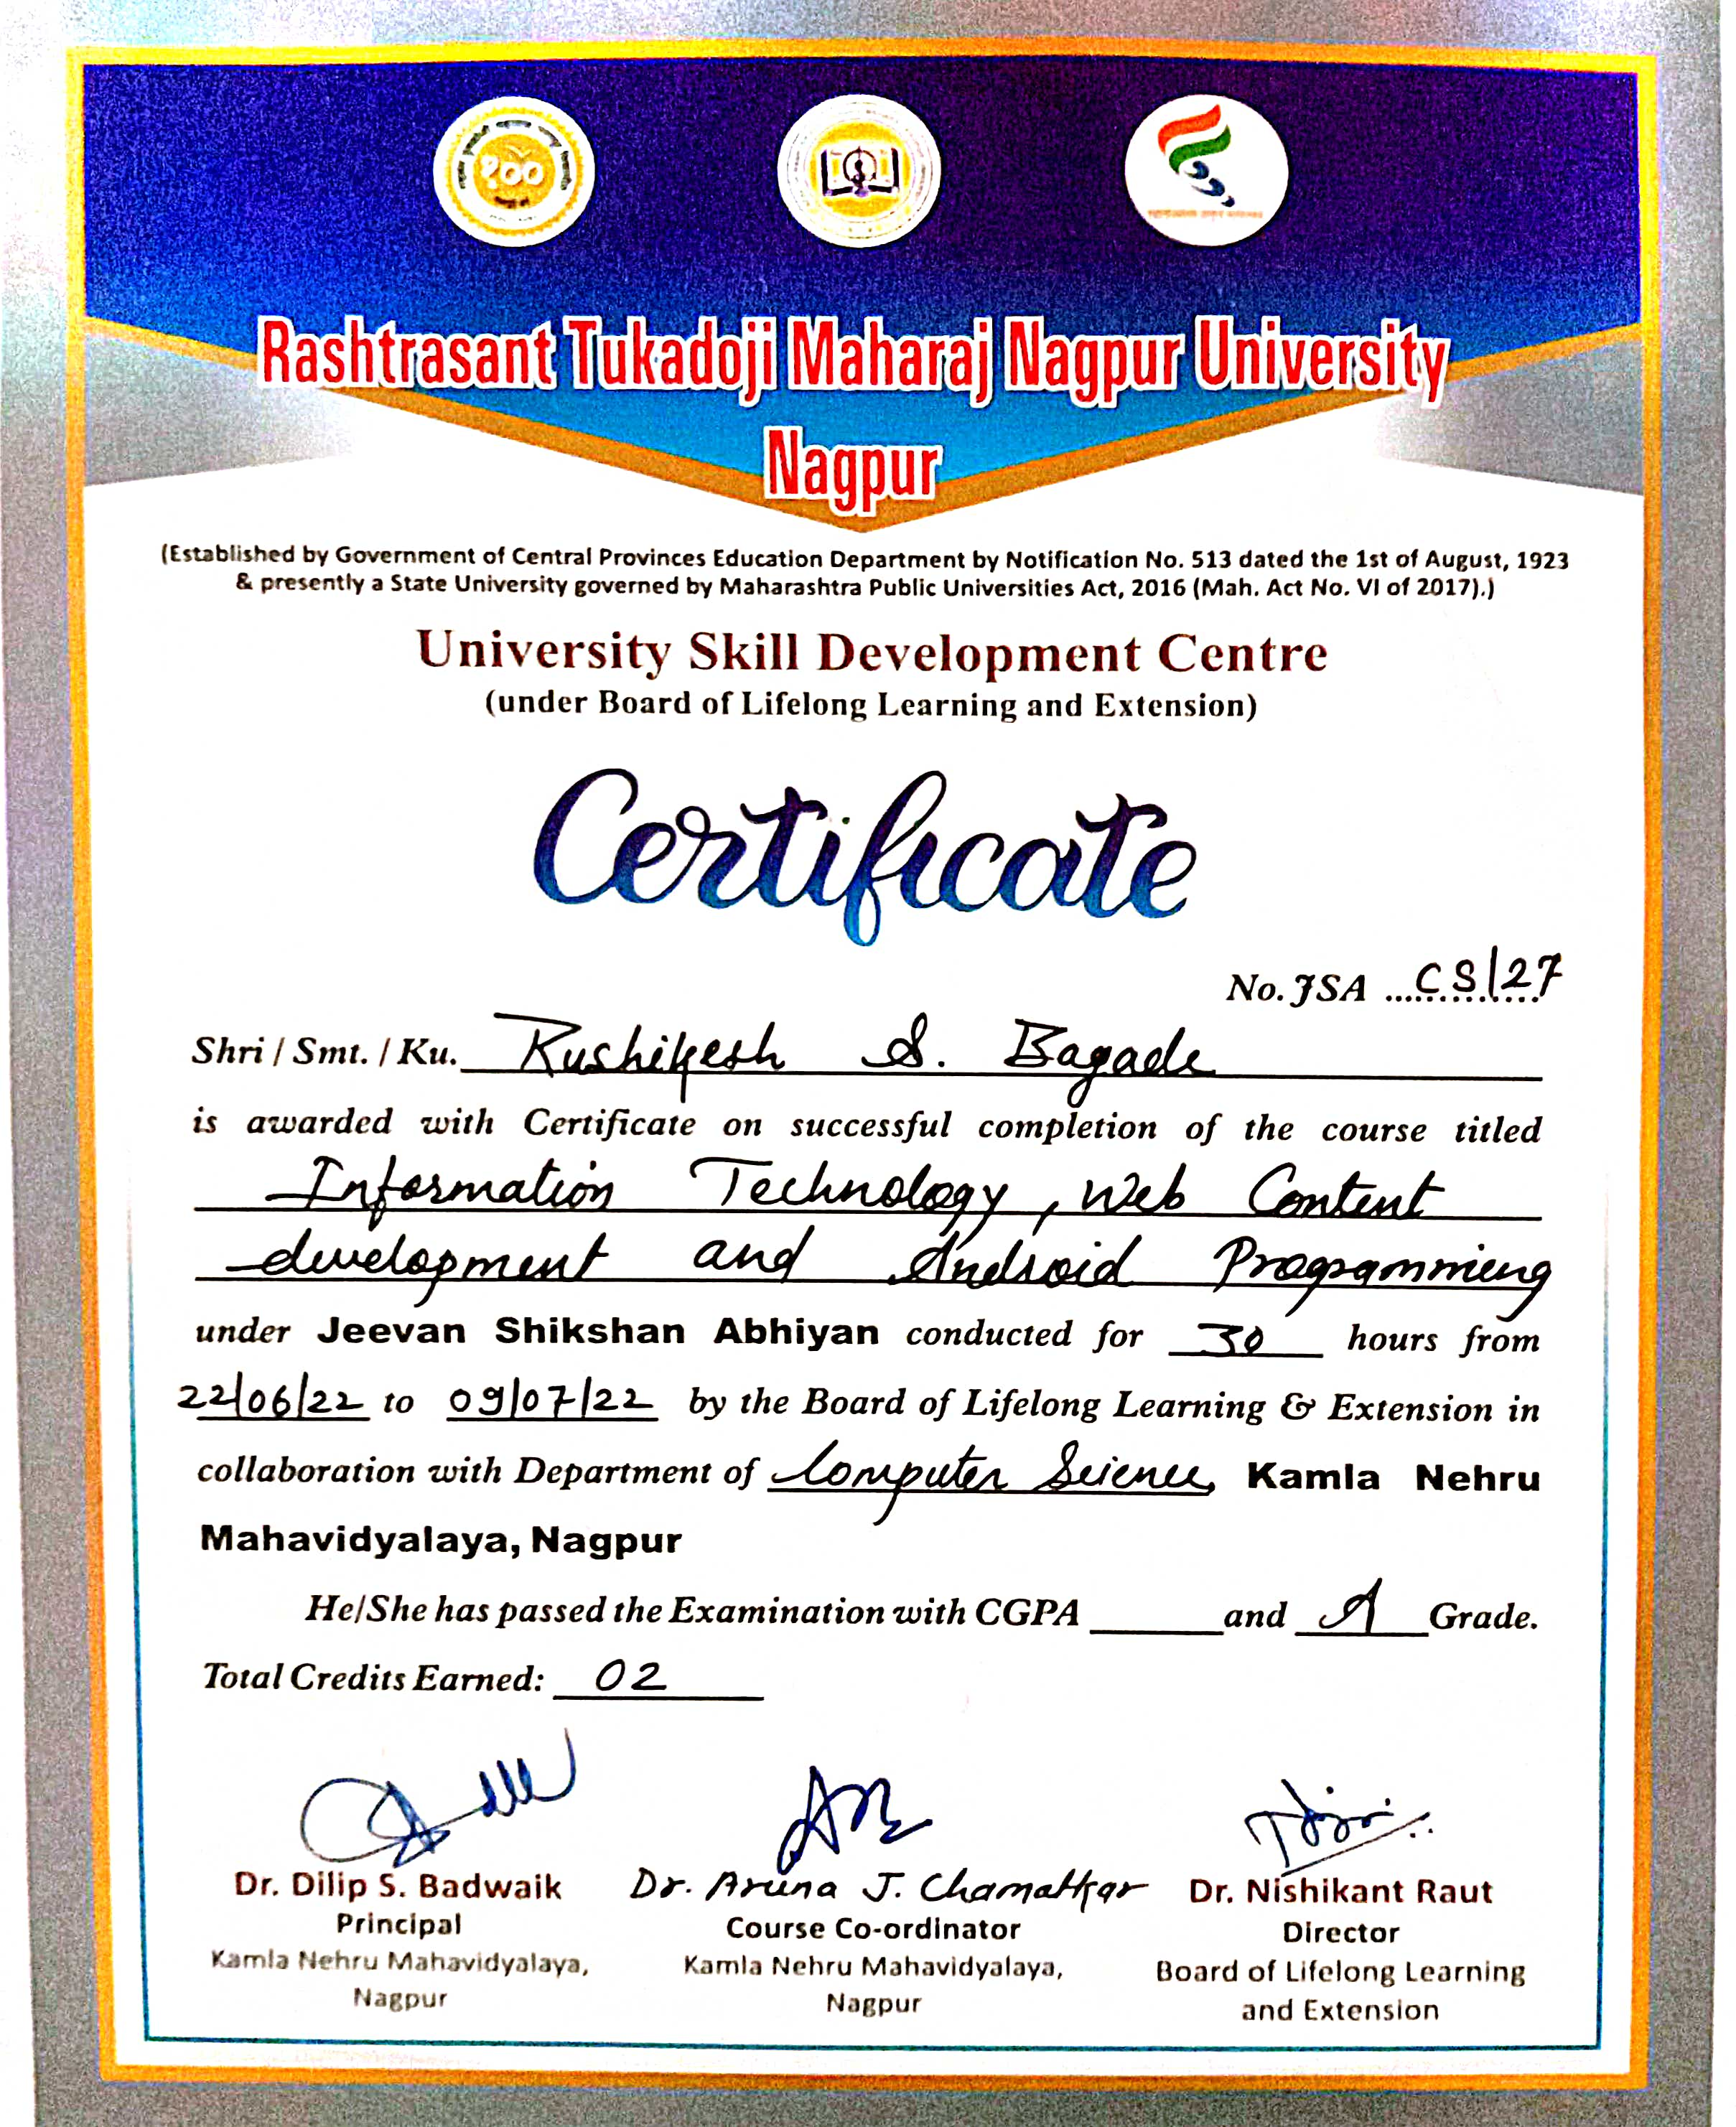 १००
Rashtrasant Tukadoji Maharaj Nagpur University
Nagpur
(Established by Government of Central Provinces Education Department by Notification No. 513 dated the 1st of August, 1923
& presently a State University governed by Maharashtra Public Universities Act, 2016 (Mah. Act No. VI of 2017).)
University Skill Development Centre
(under Board of Lifelong Learning and Extension)
Certificate
No. JSA ...CS/27
Shri / Smt. / Ku. Rushikesh S. Bagade
is awarded with Certificate on successful completion of the course titled
Information Technology, Web Content
development and Android Programming
under Jeevan Shikshan Abhiyan conducted for 30 hours from
22/06/22 to 09/07/22 by the Board of Lifelong Learning & Extension in
collaboration with Department of Computer Science, Kamla Nehru
Mahavidyalaya, Nagpur
He/She has passed the Examination with CGPA ______ and A Grade.
Total Credits Earned: 02
Dr. Dilip S. Badwaik
Principal
Kamla Nehru Mahavidyalaya,
Nagpur
Dr. Aruna J. Chamatkar
Course Co-ordinator
Kamla Nehru Mahavidyalaya,
Nagpur
Dr. Nishikant Raut
Director
Board of Lifelong Learning
and Extension